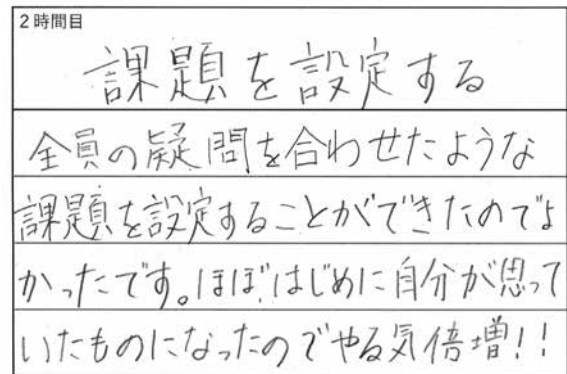 2時間目
課題を設定する
全員の疑問を合わせたような
課題を設定することができたのでよ
かったです。ほぼ、はじめに自分が思って
いたものになったのでやる気倍増!!